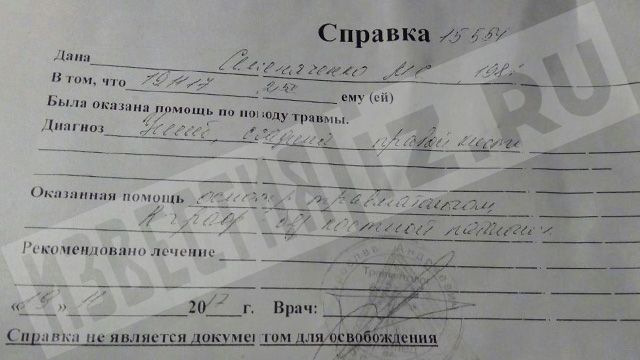 Справка 15554
Дана Семеняченко М.С., 198
В том, что 19 11 17 ему (ей)
Была оказана помощь по поводу травмы.
Диагноз Ушиб, ссадина правой кисти
Оказанная помощь осмотр травматологом,
R граф - без костной патолог.
Рекомендовано лечение
«19» 11 2017 г. Врач:
Справка не является документом для освобождения
ИЗВЕСТИЯ IZ.RU